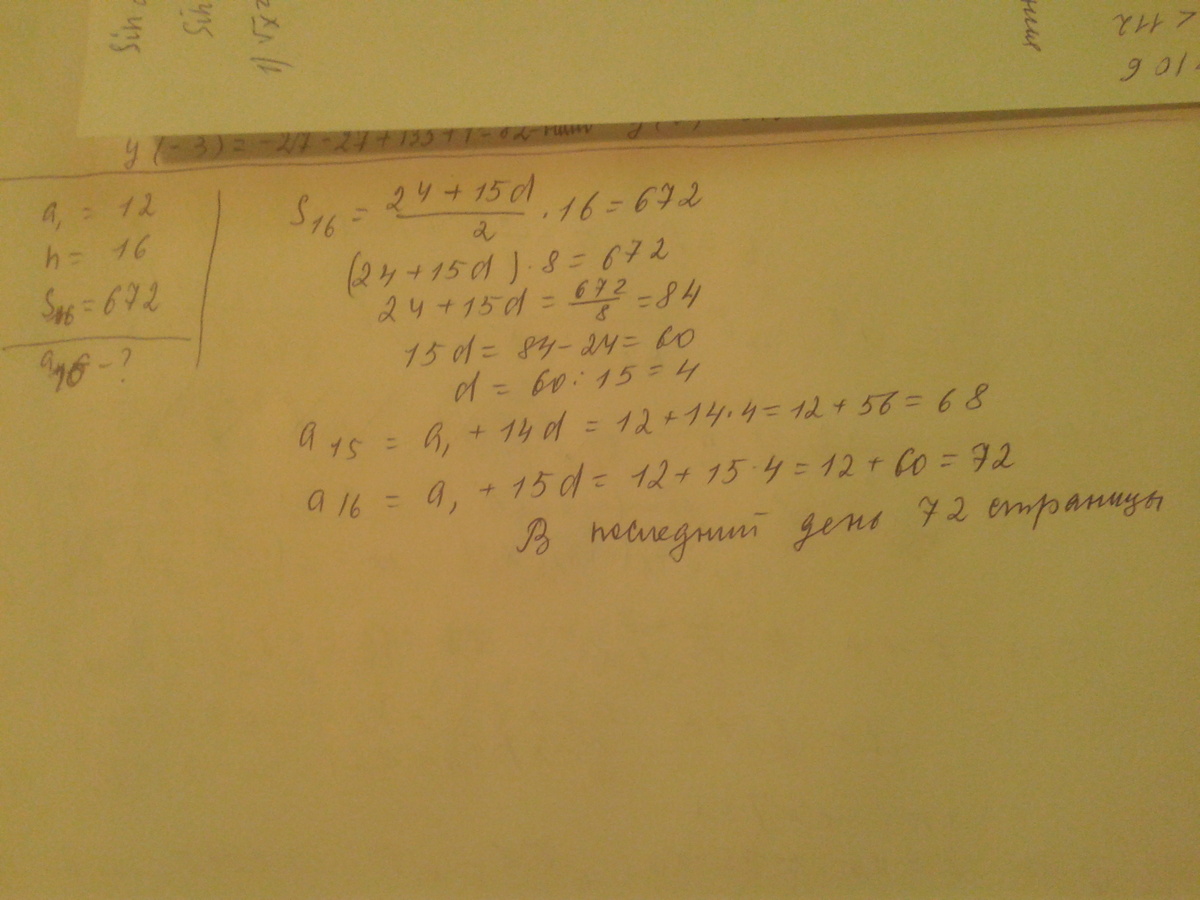 Sin
Sin
1) √x
ния
< 112
106
y(-3) = -27-27+135+1=82
a₁ = 12
n = 16
S₁₆ = 672
a₁₆ - ?
S₁₆ = (24 + 15d)/2 · 16 = 672
(24 + 15d) · 8 = 672
24 + 15d = 672/8 = 84
15d = 84 - 24 = 60
d = 60 : 15 = 4
a₁₅ = a₁ + 14d = 12 + 14 · 4 = 12 + 56 = 68
a₁₆ = a₁ + 15d = 12 + 15 · 4 = 12 + 60 = 72
В последний день 72 страницы